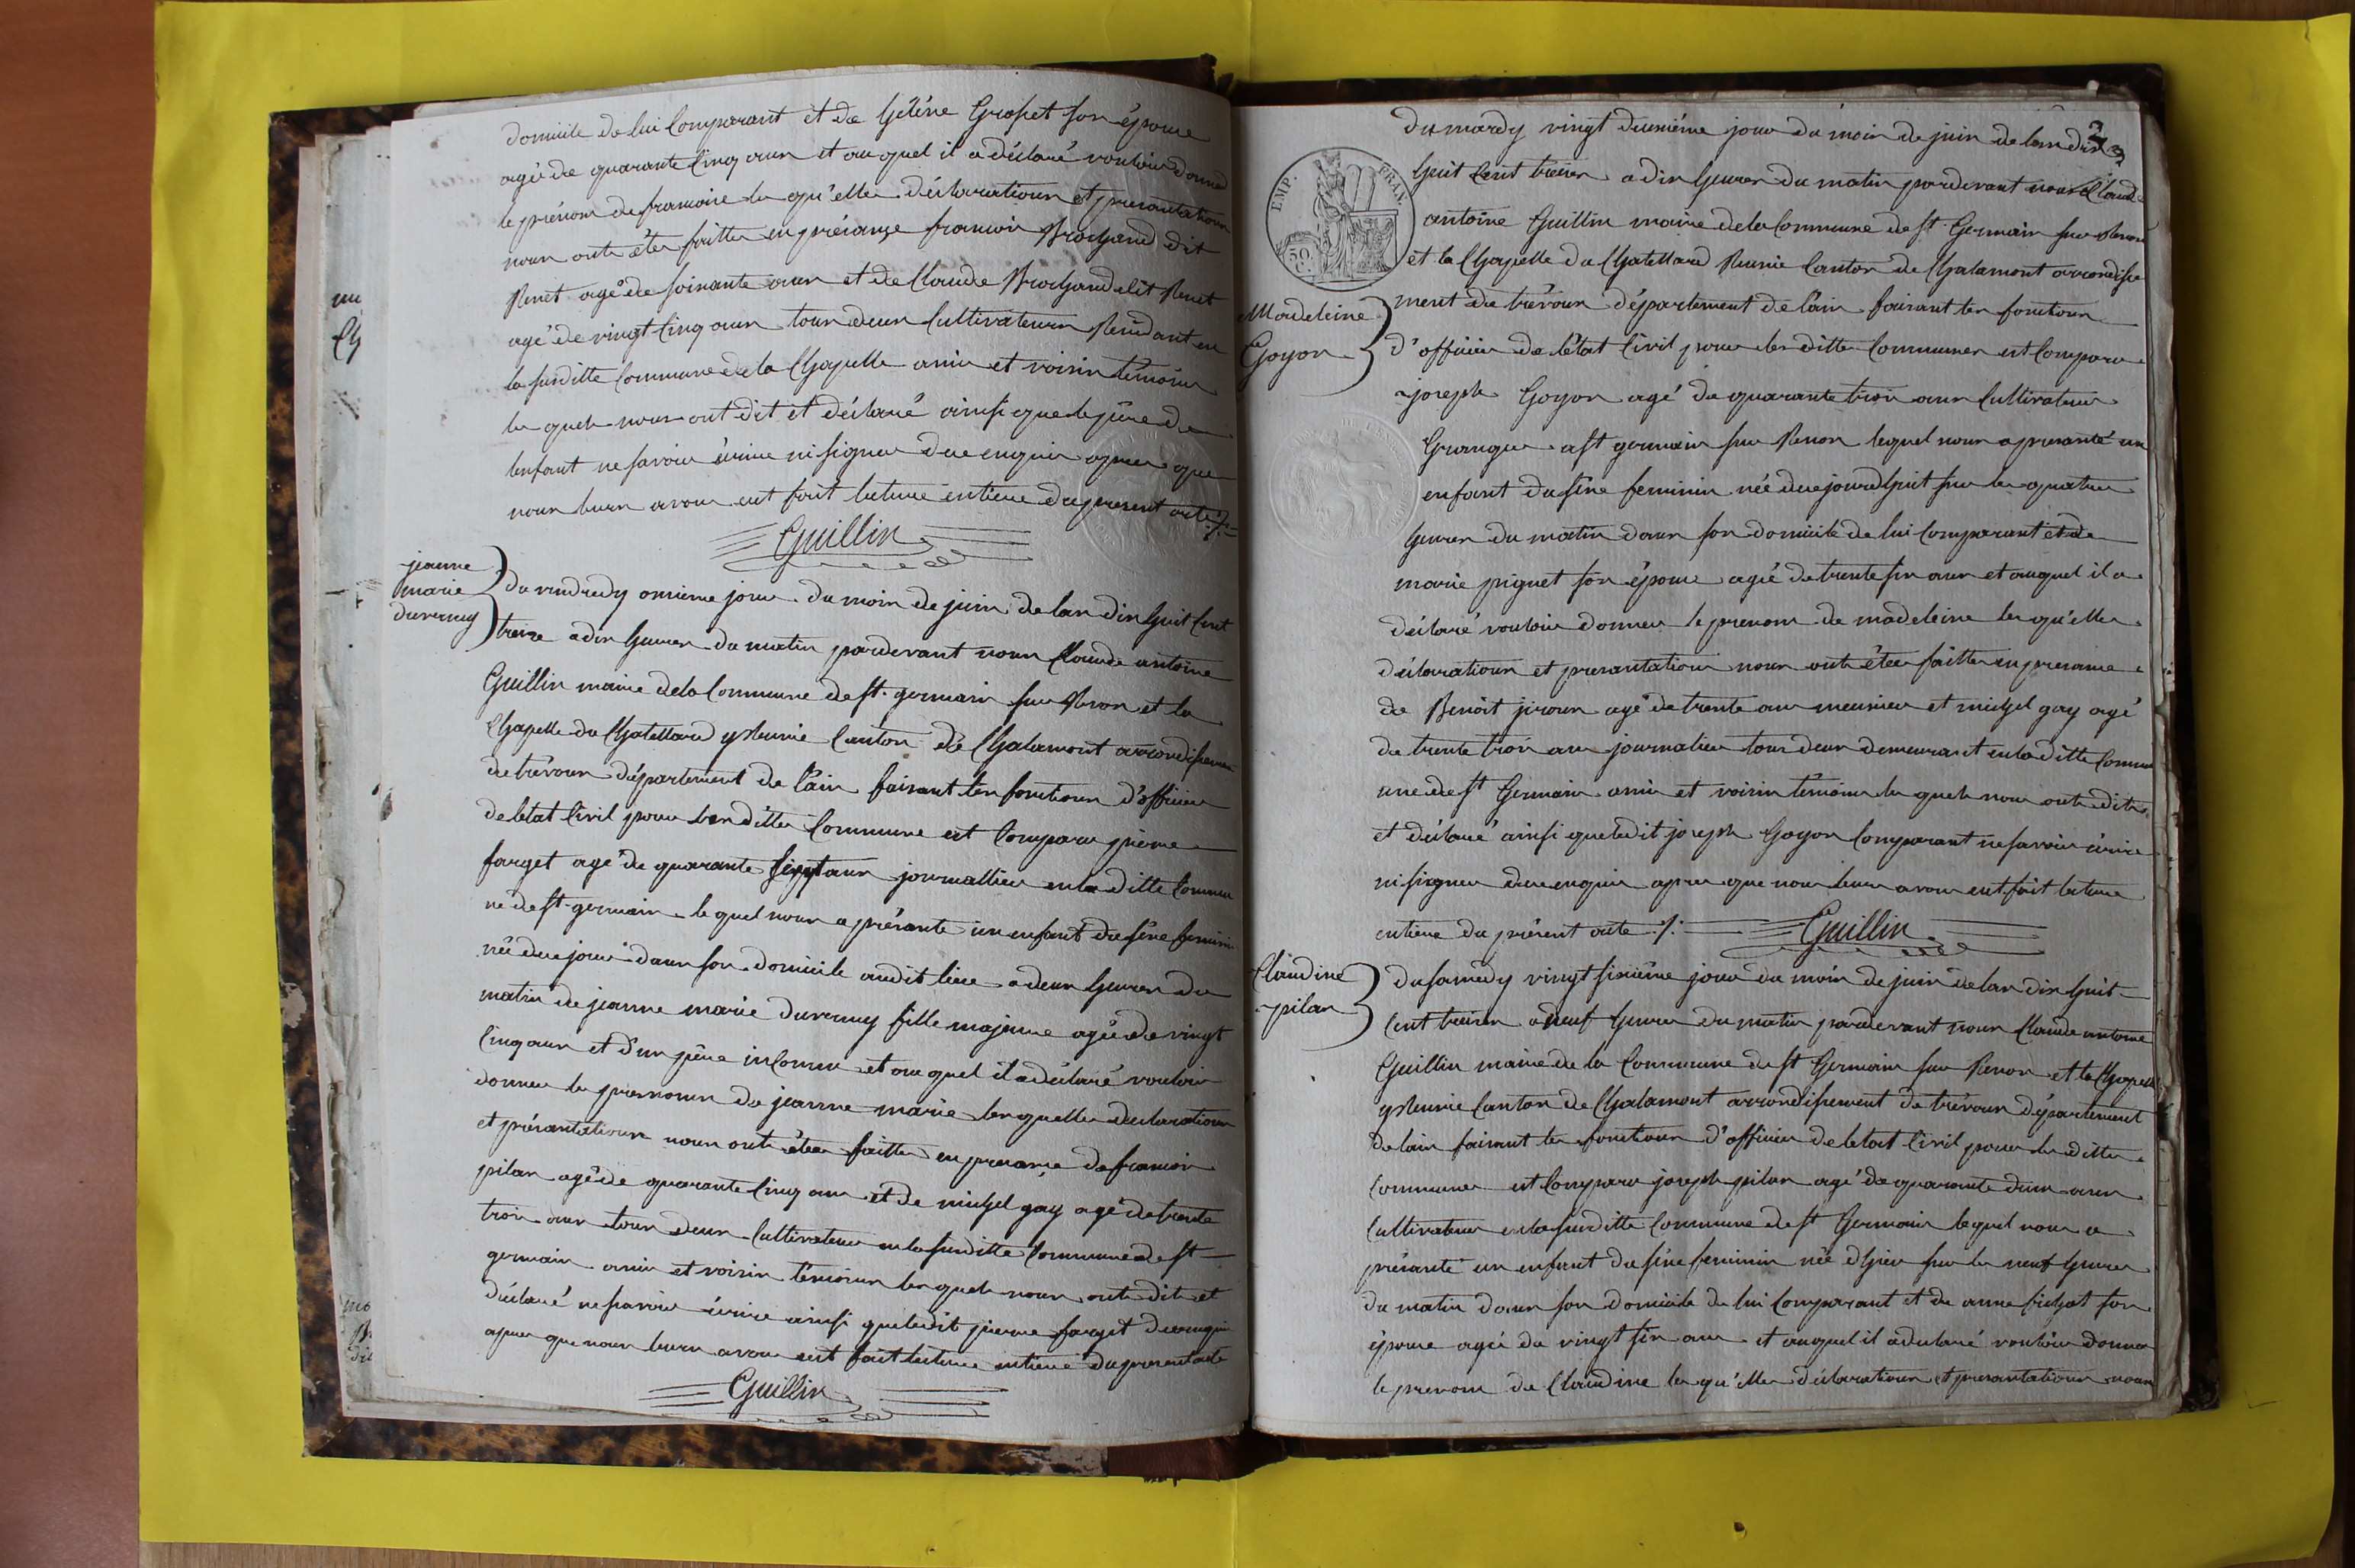 domicile de lui Comparant et de helène Gropet son épouse
agé de quarante Cinq ans et au quel il a déclaré vouloir donné
le prénom de francoise les qu'elles déclarations et presantations
nous onts étés faittes en présance francois Brochand dit
Benet agé de soixante ans et de Claude Brochand dit Benet
agé de vingt Cinq ans tous deux Cultivateurs Résidant en
la susditte Commune de la Chapelle amis et voisin témoins
les quels nous ont dit et déclaré ainsi que le père de
lenfant ne savoir écrire ni signer de ce enquis apres que
nous leurs avons eut fait lecture entiere du present acte ./.
Guillin
jeanne
marie
duvernay
du vendredy onzième jour du mois de juin de lan dix huit Cent
treize a dix heures du matin pardevant nous Claude antoine
Guillin maire dela Commune de st. germain sur Renon et la
Chapelle du Chatellard y Reunie Canton de Chalamont arrondissement
de trévoux département de l'ain faisant les fonctions d'officier
de letat Civil pour les dittes Commune est Comparu pierre
farget agé de quarante sept ans journallier en la ditte Commu
ne de st. germain le quel nous a présanté un enfant du séxe feminin
née de ce jour dans son domicile audit lieu a deux heures du
matin de jeanne marie duvernay fille majeure agée de vingt
Cinq ans et d'un père inConnu et au quel il a déclaré vouloir
donner les prenoms de jeanne marie les quelles declarations
et présantations nous onts étés faittes en presance de francois
pilan agé de quarante Cinq ans et de michel gay agé de trente
trois ans tous deux Cultivateurs en la susditte Commune de st
germain amis et voisin témoins les quels nous onts dit et
déclaré ne savoir écrire ainsi que ledit pierre farget de ce enquis
apres que nous leurs avons eut fait lecture entiere du present acte
Guillin
3
du mardy vingt deuxiéme jour du mois de juin de lan dix
huit Cent treize a dix heures du matin pardevant nous Claude
EMP. FRAN.
50 C.
antoine Guillin maire dela Commune de st. Germain sur Renon
et la Chapelle du Chatellard Reunie Canton de Chalamont arrondisse
Madeleine
Goyon
ment de trévoux département de l'ain faisant les fonctions
d'officier de létat Civil pour les dittes Communes est Comparu
joseph Goyon agé de quarante trois ans Cultivateur
Granger a st germain sur Renon lequel nous a presanté un
enfant du séxe feminin née de ce jourdhuit sur les quatres
heures du matin dans son domicile de lui Comparant et de
marie piguet son épouse agée de trente six ans et auquel il a
déclaré vouloir donner le prenom de madeleine les qu'elles
déclarations et presantations nous onts étés faittes en presance
de Benoit jvoux agé de trente ans meunier et michel gay agé
de trente trois ans journalier tous deux demeurant en la ditte Commu
une de st Germain amis et voisin témoins les quels nous onts dit
et déclaré ainsi que ledit joseph Goyon Comparant ne savoir écrire
ni signer de ce enquis apres que nous leurs avons eut fait lecture
entiere du présent acte ./.
Guillin
Claudine
pilan
du samedy vingt sixiéme jour du mois de juin de lan dix huit
Cent treize a neuf heures du matin pardevant nous Claude antoine
Guillin maire de la Commune de st Germain sur Renon et la Chapelle
y Reunie Canton de Chalamont arrondissement de trévoux département
de lain faisant les fonctions d'officier de letat Civil pour les dittes
Communes est Comparu joseph pilan agé de quarante deux ans
Cultivateur en la susditte Commune de st Germain lequel nous a
présanté un enfant du séxe feminin née dhier sur les neuf heures
du matin dans son domicile de lui Comparant et de anne son
épouse agée de vingt six ans et auquel il a déclaré vouloir donner
le prenom de Claudine les qu'elles déclarations et presantations nous